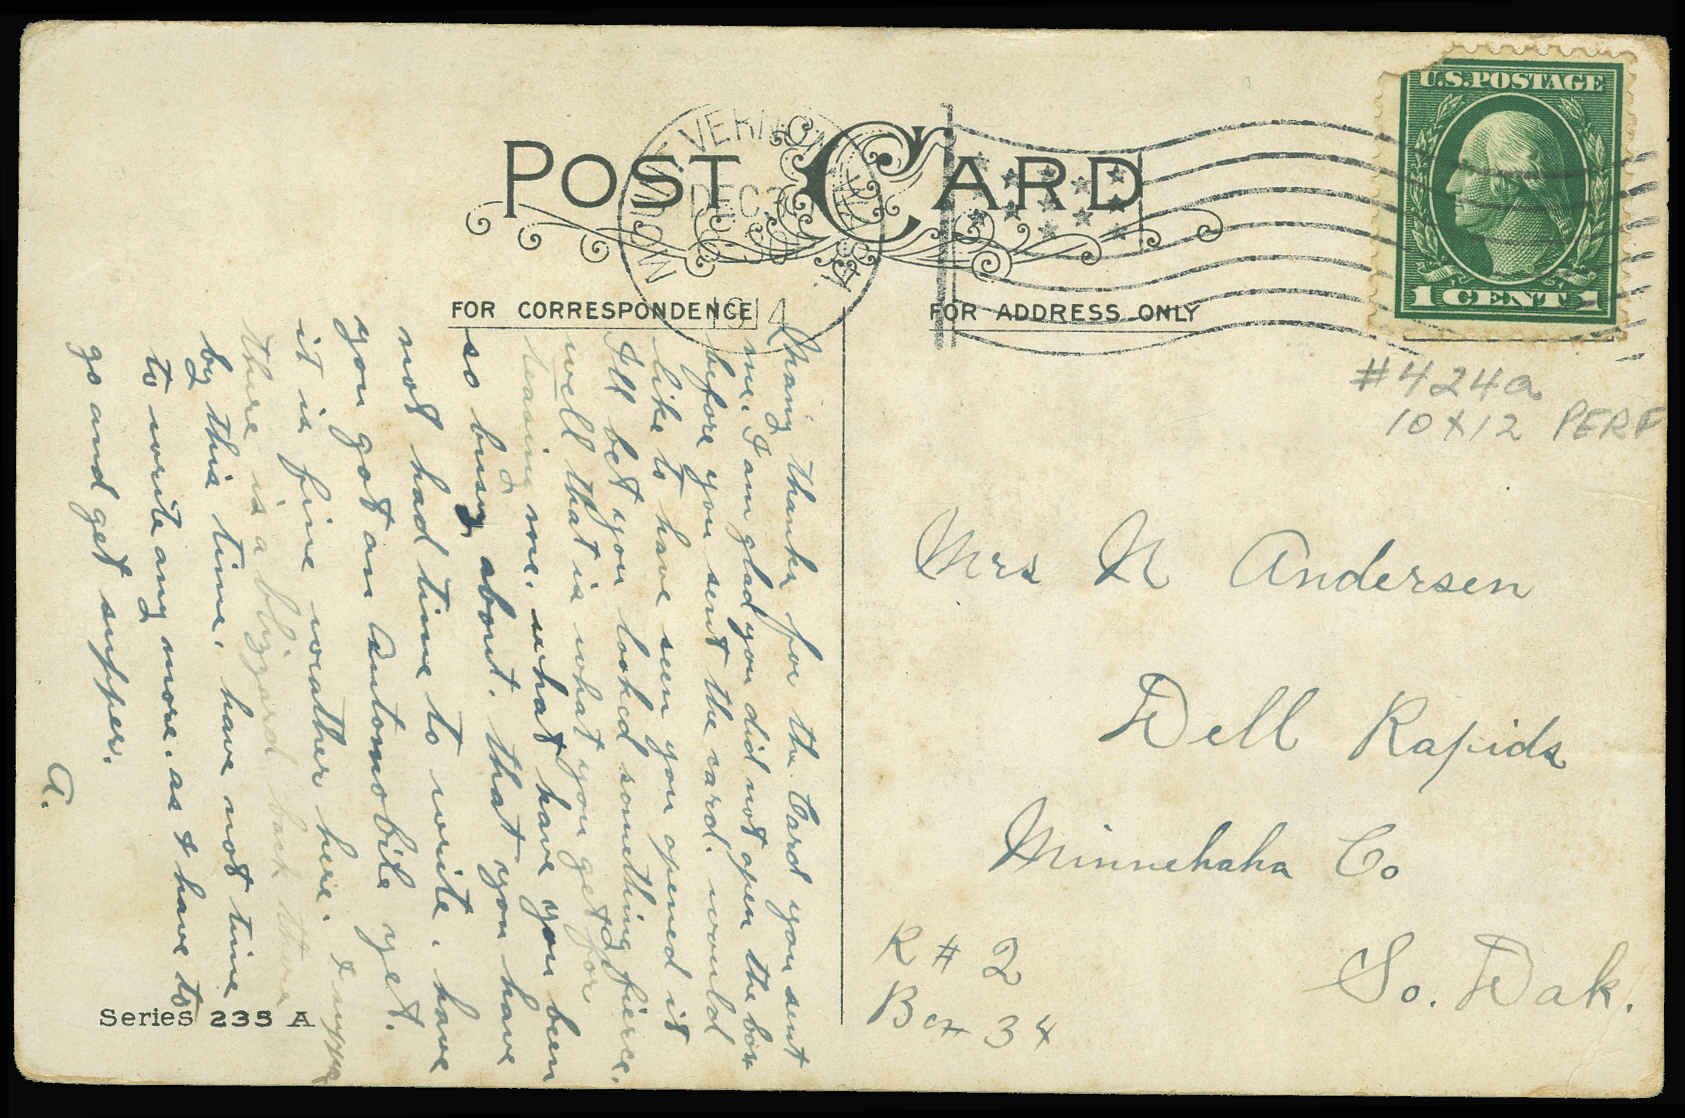 POST CARD
MOUNT VERNON WASH.
DEC 3
1914
U.S. POSTAGE
1 CENT 1
FOR CORRESPONDENCE
FOR ADDRESS ONLY
#424a
10 X 12 PERF
Many thanks for the Card you sent
me. I am glad you did not open the box
before you sent the card. would
like to have seen you opened it
I'll bet you looked something fierce.
well that is what you get for
teasing me. what have you been
so busy about. that you have
not had time to write. have
you got an automobile yet.
it is fine weather here. I suppose
there is a blizzard back there
by this time. have not time
to write any more. as I have to
go and get supper.
A.
Mrs N Andersen
Dell Rapids
Minnehaha Co
So. Dak.
R # 2
Box 34
Series 235 A